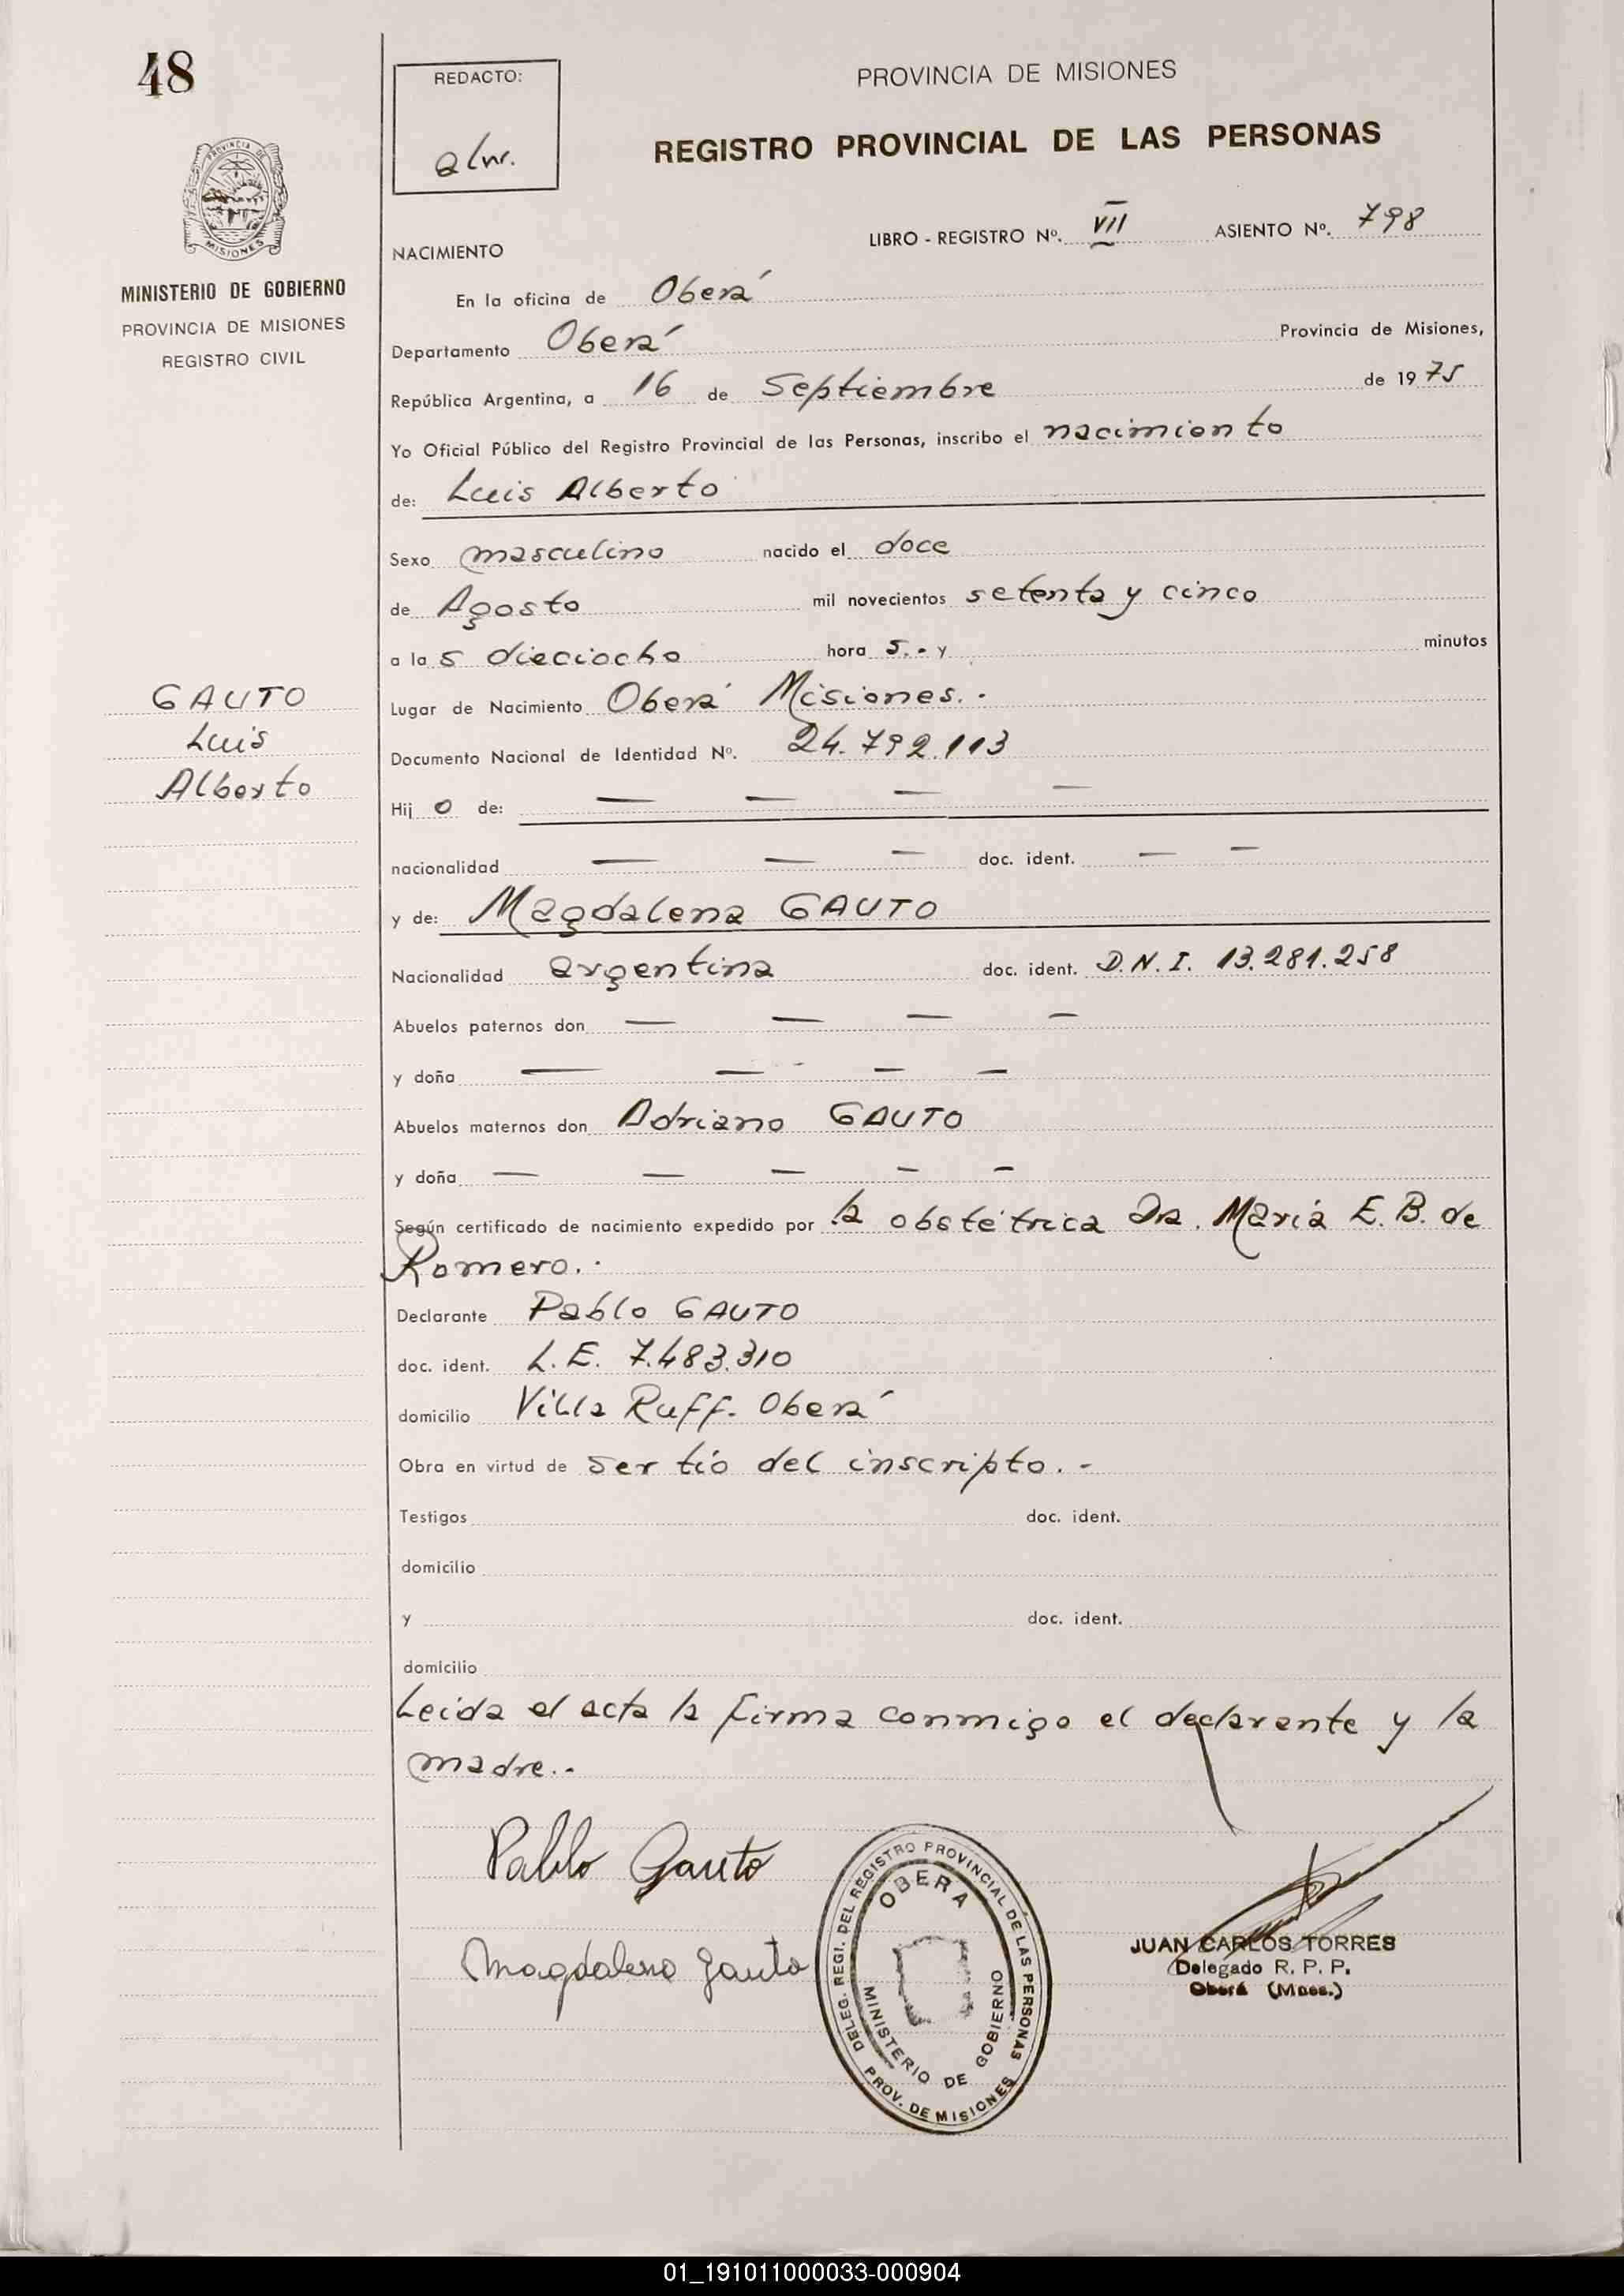 48
REDACTO:
alnr.
PROVINCIA DE MISIONES
REGISTRO PROVINCIAL DE LAS PERSONAS
PROVINCIA DE
MISIONES
MINISTERIO DE GOBIERNO
PROVINCIA DE MISIONES
REGISTRO CIVIL
LIBRO - REGISTRO Nº. VII ASIENTO Nº. 798
NACIMIENTO
En la oficina de Oberá
Departamento Oberá Provincia de Misiones,
República Argentina, a 16 de Septiembre de 1975
Yo Oficial Público del Registro Provincial de las Personas, inscribo el nacimiento
de: Luis Alberto
Sexo masculino nacido el doce
de Agosto mil novecientos setenta y cinco
a la s dieciocho hora s.- y minutos
Lugar de Nacimiento Oberá Misiones.-
Documento Nacional de Identidad Nº. 24.792.113
GAUTO
Luis
Alberto
Hij o de: — — — —
nacionalidad — — — doc. ident. — —
y de: Magdalena GAUTO
Nacionalidad argentina doc. ident. D.N.I. 13.281.258
Abuelos paternos don — — — —
y doña — — — —
Abuelos maternos don Adriano GAUTO
y doña — — — — —
Según certificado de nacimiento expedido por la obstétrica Dra. María E. B. de
Romero.-
Declarante Pablo GAUTO
doc. ident. L.E. 7.483.310
domicilio Villa Ruff. Oberá
Obra en virtud de ser tío del inscripto.-
Testigos doc. ident.
domicilio
y doc. ident.
domicilio
Leida el acta la firma conmigo el declarante y la
madre.-
Pablo Gauto
Magdalena Gauto
DELEG. REGI. DEL REGISTRO PROVINCIAL DE LAS PERSONAS
OBERA
MINISTERIO DE GOBIERNO
PROV. DE MISIONES
JUAN CARLOS TORRES
Delegado R. P. P.
Oberá (Mnes.)
01_191011000033-000904